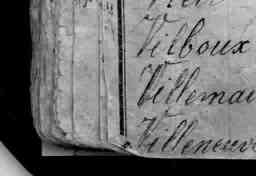 Vilboux
Villemai
Villeneuv